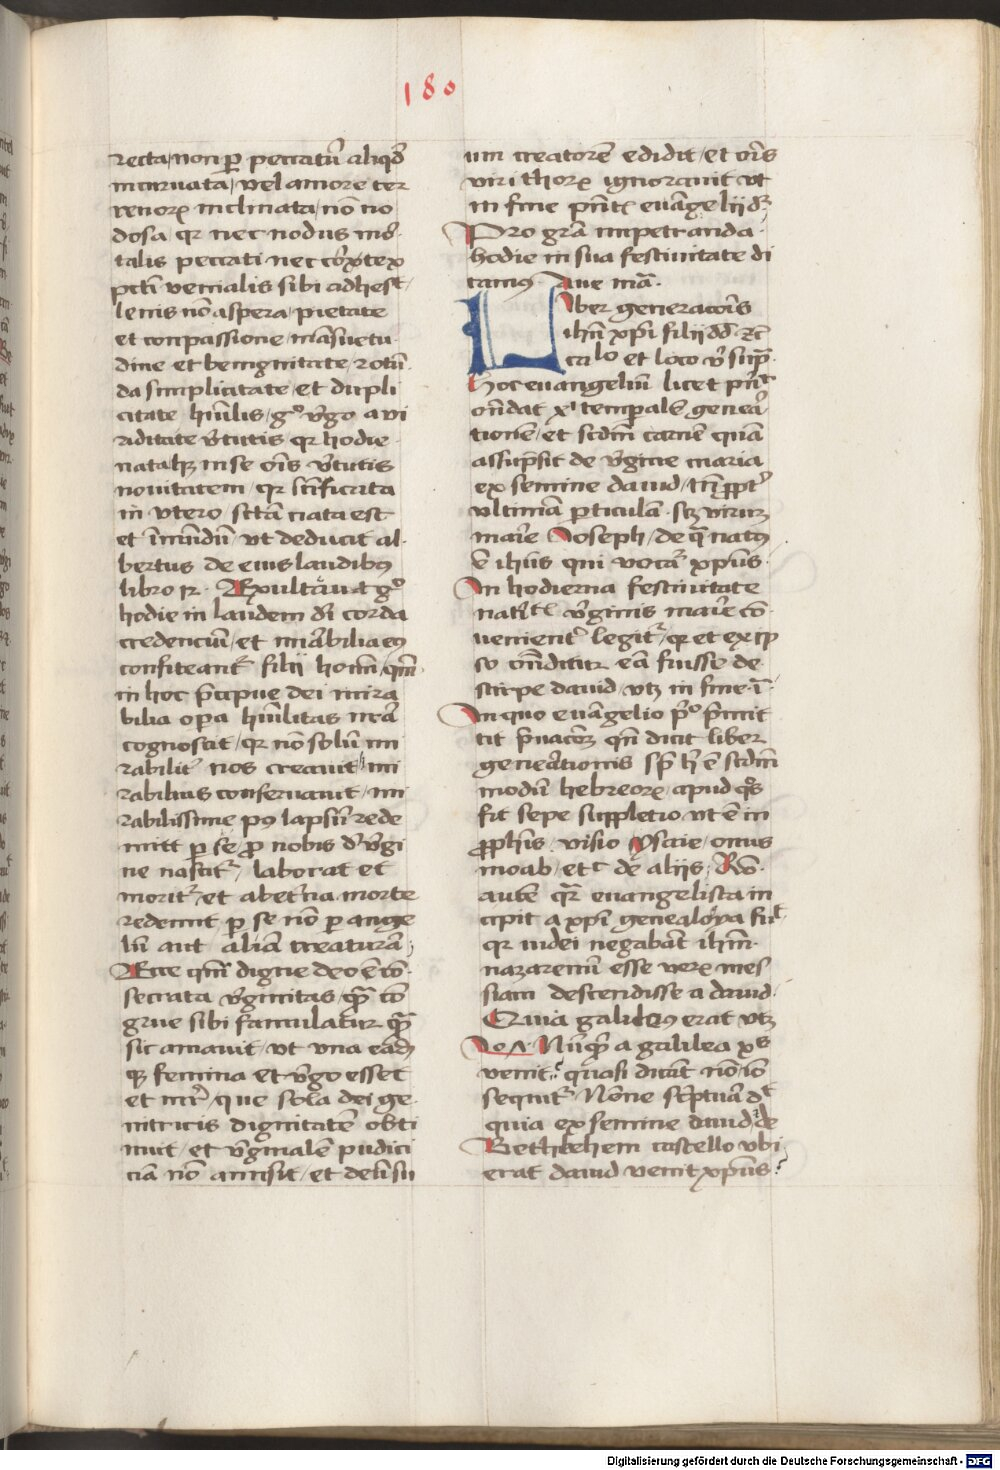 180
recta / non ꝑ peccatū aliqd̛
incuruata / vel amore ter
renoꝝ inclinata / nō no
dosa / qꝛ nec nodus mor̛
talis peccati nec cortex
pcti venialis sibi adhesit /
lenis nō aspera / pietate
et conpassione / māsuetu
dine et benignitate / rotū
da simplicitate / et dupli
citate hūilis / gͦ v̛go a vi
riditate v̛tutis qꝛ hodie
nata hꝫ in se oīs v̛tutis
nouitatem / qꝛ sc̄ificata
in vtero / sctā nata est
et ī mūdū / vt deducit al
bertus de eius laudibꝰ
libro 12 · Exultāvit gͦ
hodie in laudem dn̄i corda
credenciū / et mirabilia eiꝰ
confiteant᷑ filij homī / qm̄
in hoc p̄cipue dei mira
bilia oꝑa hūilitas nr̄a
cognoscit / qꝛ nō solū mi
rabilit᷑ nos creauit / mi
rabilius conseruauit / mi
rabilissime pꝰ lapsū rede
mit ꝑ se ꝓ nobis de v̛gi
ne nascit᷑ / laborat et
morit᷑ / et ab et̛na morte
redemit ꝑ se nō ꝑ ange
lū aut aliā creaturā ;
Ecce qm̄ digne deo ē cō
secrata v̛ginitas / qꝫ cō
grue sibi famulatur qꝫ
sic amauit / vt vna eadē
qꝫ femina et v̛go esset
et mr̄ / que sola dei ge
nitricis dignitatē obti
nuit / et v̛ginalē pudici
ciā nō amisit / et deū su
um creatorē edidit / et oīs
viri thoꝝ ignorauit vt
in fine pn̄tꝭ euāgelij dꝫ
Pro grā impetranda
hodie in sua festiuitate di
camꝰ · Aue ma͞ ·
Liber generacōis
ihū xp̄i filij dd̄ ꝛc̄
ca lo et loco vͦ sup̄ ·
Hoc euangeliū licet pn̄t
on̄dat xͥ tempalē genera̛
tionē / et scdm̄ carnē quā
assūpsit de v̛gine maria
ex semine dauid / tn̄ ꝓpt̛
vltimā ꝑticulā · scꝫ virum
marie Joseph / de qͣ natꝰ
ē ihūs qui vocat᷑ xp̄us ·
In hodierna festiuitate
natitꝭ v̛ginis marie cō
uenient̛ legit᷑ / qꝛ et ex ip
so on̄ditur eā fuisse de
stirpe dauid / vtꝫ in fine ·
In quo euāgelio pͦ p̄mit
tit p̄nacōꝫ qn̄ dicit liber
generationis sp̄ h̄ ē scdm̄
modū hebreoꝝ / apud qͦs
fit sepe suppletio vt ē in
ꝓphīs / visio ysaie / onus
moab / et c̄ de aliis / Rō
autē qͣr̄ euangelista in
cipit a xp̄i genealoya fuit
qꝛ iudei negabāt ihm̄
nazarenū esse veꝝ mes
siam descendisse a dauid ·
Quia galileꝰ erat vtꝫ
Jo 7 · Nūqͥd a galilea xꝰ
venit ? quasi dicāt nō / iō
sequit᷑ · Nōne sc̛ptura dt
quia ex semine dauid / ꝛ de
Bethleehem castello vbi
erat dauid venit xp̄us ?
Digitalisierung gefördert durch die Deutsche Forschungsgemeinschaft - DFG